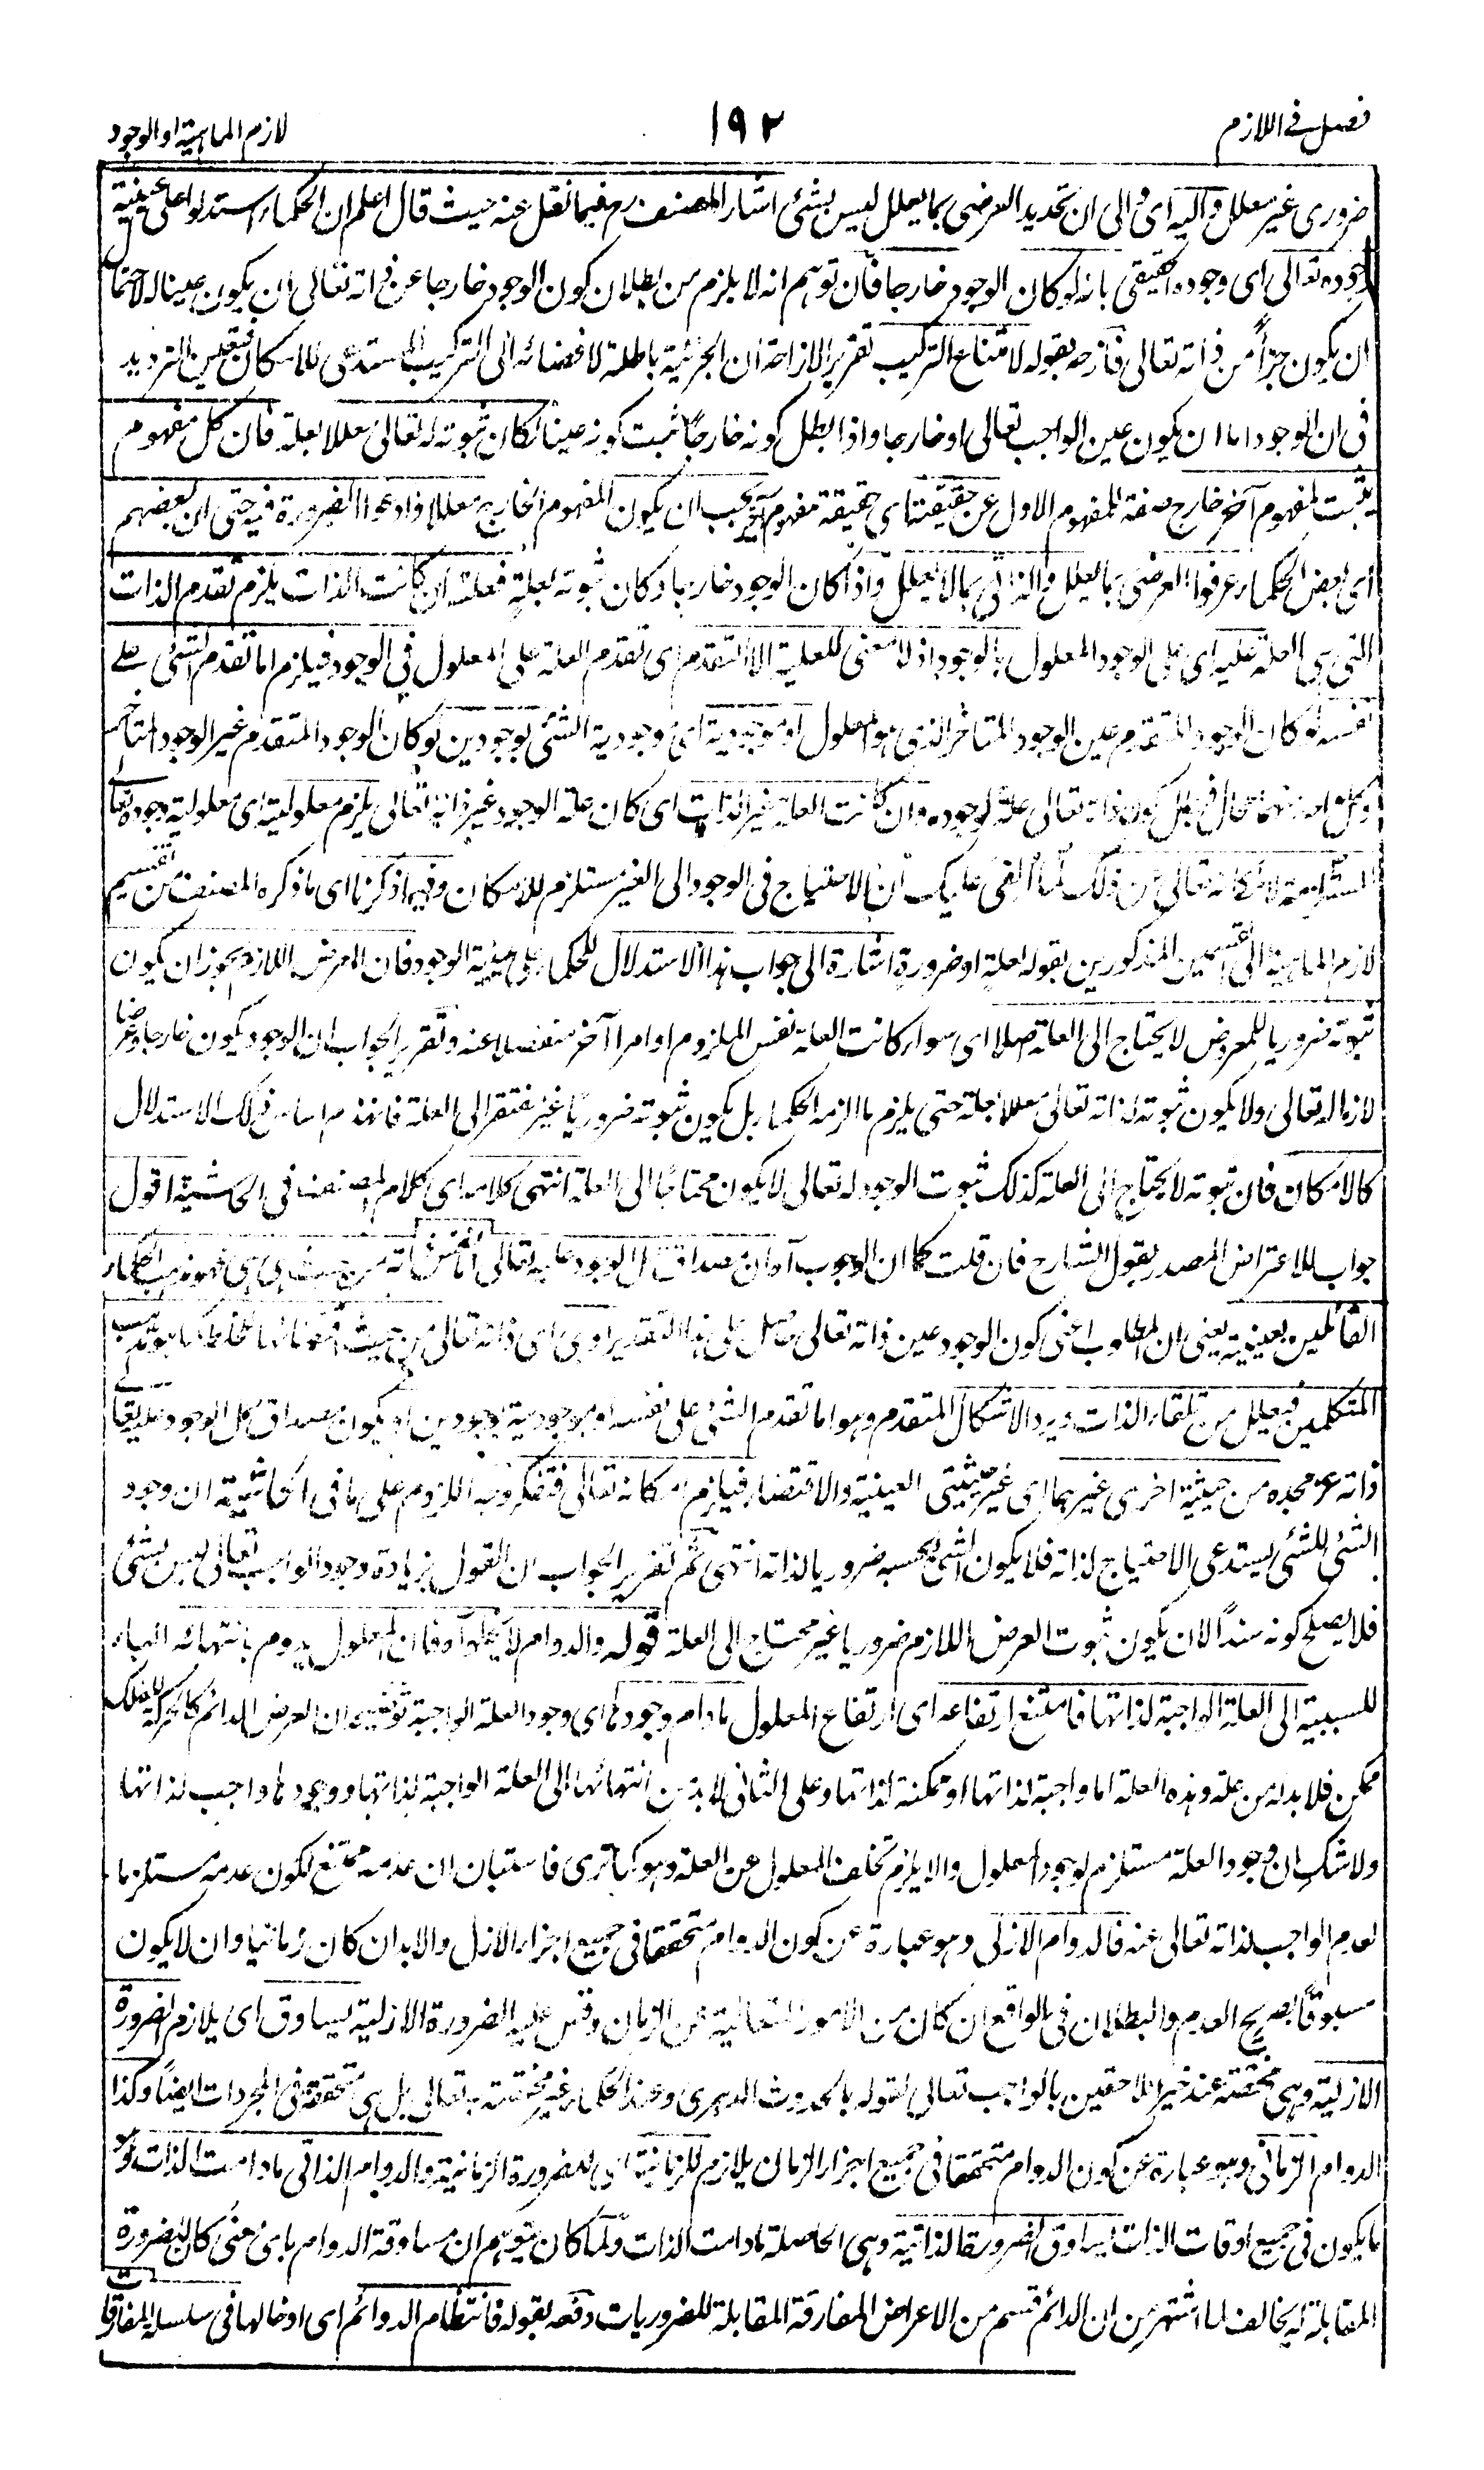 فصل في اللازم
١٩٢
لازم الماهية او الوجود
ضروري غير معلل واليه اي الى ان تحديد العرضي بما يعلل ليس بشئ اشار المصنف رح فيما نقل عنه حيث قال اعلم ان الحكماء استدلوا على عينية
وجوده تعالى اي وجوده الحقيقي بانه لو كان الوجود خارجا فان توهم انه لا يلزم من بطلان كون الوجود خارجا عن ذاته تعالى ان يكون عينا له لاحتمال
ان يكون جزأ من ذاته تعالى فازاحه بقوله لامتناع التركيب تقرير الازاحة ان الجزئية باطلة لافضائه الى التركيب المستدعي للامكان فتعين الترديد
في ان الوجود اما ان يكون عين الواجب تعالى او خارجا واذا بطل كونه خارجا ثبت كونه عينا لكان ثبوته له تعالى معللا بعلة فان كل مفهوم
يثبت لمفهوم آخر خارج صفة للمفهوم الاول عن حقيقتة اي حقيقة مفهوم آخر يجب ان يكون المفهوم الخارج معللا وادعوا الضرورة فيه حتى ان بعضهم
اي بعض الحكماء عرفوا العرضي بما يعلل والذاتي بما لا يعلل واذا كان الوجود خارجا وكان ثبوته لعلة فعلته ان كانت الذات يلزم تقدم الذات
التي هي العلة عليه اي على الوجود المعلول بالوجود اذ لا معنى للعلية الا التقدم اي تقدم العلة على المعلول في الوجود فيلزم اما تقدم الشئ على
نفسه لو كان الوجود المتقدم عين الوجود المتاخر الذي هو المعلول او موجودية اي وجودية الشئ بوجودين لو كان الوجود المتقدم غير الوجود المتاخر
وكل واحد منهما محال فبطل كون ذاته تعالى علة لوجوده وان كانت العلة غير الذات اي كان علة الوجود غير ذاته تعالى يلزم معلوليته اي معلولية وجوده تعالى
المستلزمة لامكانه تعالى عن ذلك لما القي عليك ان الاحتياج في الوجود الى الغير مستلزم للامكان وفيما ذكرنا اي ما ذكره المصنف من تقسيم
لازم الماهية الى القسمين المذكورين بقوله لعلة او ضرورة اشارة الى جواب هذا الاستدلال للحكماء على عينية الوجود فان العرض اللازم يجوز ان يكون
ثبوته ضروريا للمعروض لا يحتاج الى العلة اصلا اي سواء كانت العلة نفس الملزوم او امرا آخر منفصلا عنه وتقرير الجواب ان الوجود يكون خارجا وعرضا
لازما له تعالى ولا يكون ثبوته لذاته تعالى معللا بعلة حتى يلزم ما الزمه الحكماء بل يكون ثبوته ضروريا غير مفتقر الى العلة فانهدم اساس ذلك الاستدلال
كالامكان فان ثبوته لا يحتاج الى العلة كذلك ثبوت الوجود له تعالى لا يكون محتاجا الى العلة انتهى كلامه اي كلام المصنف في الحاشية اقول
جواب للاعتراض المصدر بقول الشارح فان قلت كما ان الوجوب آه ان مصداق حمل الوجود عليه تعالى اما نفس ذاته من حيث هي هي فهو مذهب الحكماء
القائلين بعينيته يعني ان المطلوب اعني كون الوجود عين ذاته تعالى حاصل على هذا التقدير او هي اي ذاته تعالى من حيث اقتضائها للخلط كما هو مذهب
المتكلمين فيعلل من تلقاء الذات ويرد الاشكال المتقدم وهو اما تقدم الشئ على نفسه او موجودية بوجودين او يكون مصداق حمل الوجود عليه تعالى
ذاته عز مجده من حيثية اخرى غيرهما اي غير حيثيتي العينية والاقتضاء فيلزم امكانه تعالى فتفكر وجه اللزوم على ما في الحاشية ان وجود
الشئ للشئ يستدعي الاحتياج لذاته فلا يكون الشئ بحسبه ضروريا لذاته انتهى ثم تقرير الجواب ان القول بزيادة وجود الواجب تعالى ليس بشئ
فلا يصلح كونه سندا لان يكون ثبوت العرض اللازم ضروريا غير محتاج الى العلة قوله والدوام لا يخلو آه فان المعلول يدوم بانتهائه الباء
للسببية الى العلة الواجبة لذاتها فامتنع ارتفاعه اي ارتفاع المعلول ما دام وجودها اي وجود العلة الواجبة توضيحه ان العرض الدائم كالحركة للفلك
ممكن فلا بد له من علة وهذه العلة اما واجبة لذاتها او ممكنة لذاتها وعلى الثاني لا بد من انتهائها الى العلة الواجبة لذاتها ووجودها واجب لذاتها
ولا شك ان وجود العلة مستلزم لوجود المعلول والا يلزم تخلف المعلول عن العلة وهو كما ترى فاستبان ان عدمه ممتنع لكون عدمه مستلزما
لعدم الواجب لذاته تعالى عنه فالدوام الازلي وهو عبارة عن كون الدوام متحققا في جميع اجزاء الازل والابد ان كان زمانيا وان لا يكون
مسبوقا بصريح العدم والبطلان في الواقع ان كان من الامور المتعالية عن الزمان وقس عليه الضرورة الازلية يساوق اي يلازم الضرورة
الازلية وهي مختصة عند خير اللاحقين بالواجب تعالى لقوله بالحدوث الدهري وعند الحكماء غير مختصة به تعالى بل هي متحققة في المجردات ايضا وكذا
الدوام الزماني وهو عبارة عن كون الدوام متحققا في جميع اجزاء الزمان يلازم للزمانية اي للضرورة الزمانية والدوام الذاتي ما دامت الذات وهو
ما يكون في جميع اوقات الذات يساوق الضرورة الذاتية وهي الحاصلة ما دامت الذات ولما كان يتوهم ان مساوقة الدوام باي معنى كان للضرورة
المقابلة له يخالف لما اشتهر من ان الدائم قسم من الاعراض المفارقة المقابلة للضروريات دفعه بقوله فانتظام الدوائم اي ادخالها في سلسلة المفارقات